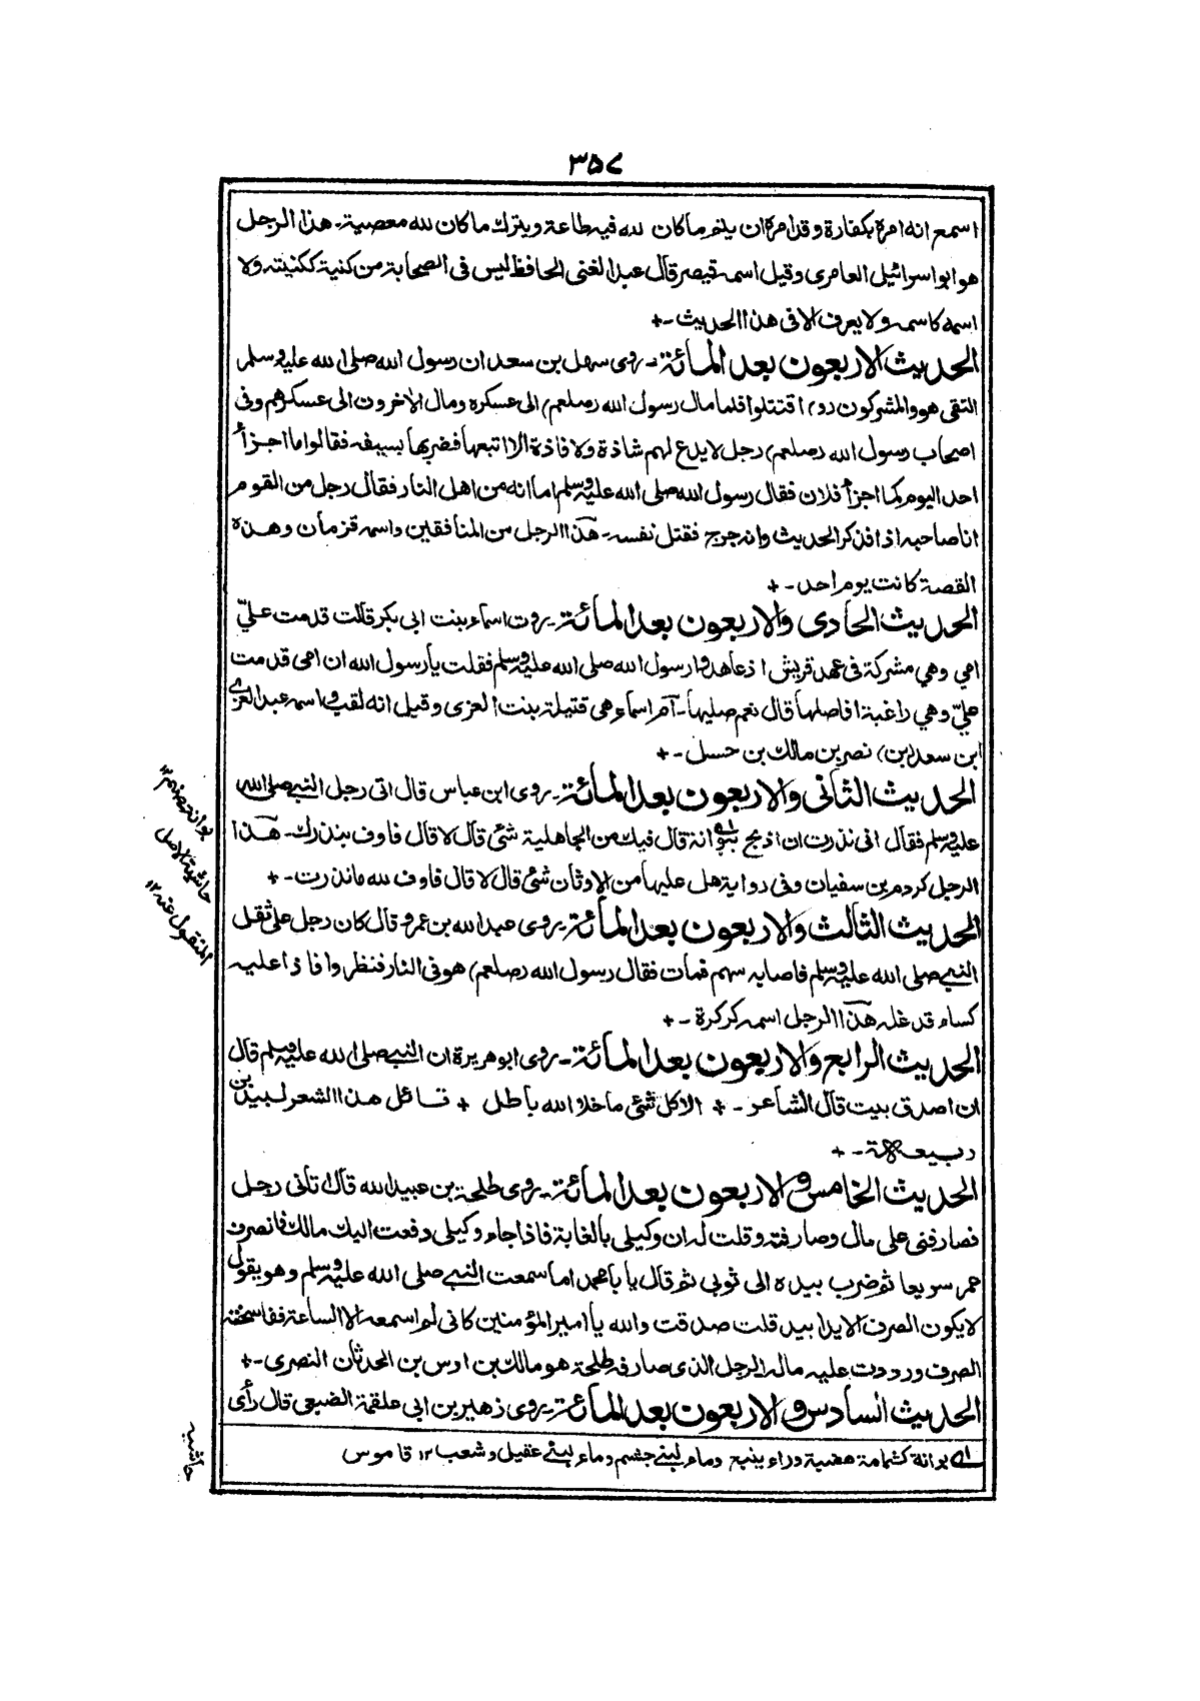 ٣٥٧
اسمع انه امره بكفارة وقد امره ان يلخر ما كان لله فيه طاعة ويترك ما كان لله معصية ـ هذا الرجل
هو ابو اسرائيل العامرى وقيل اسمه قيصر قال عبد الغنى الحافظ ليس فى الصحابة من كنية ككنيته ولا
اسمه كاسمه ولا يعرف الا فى هذا الحديث ـ +
الحديث الاربعون بعد المائة ـ روى سهل بن سعد ان رسول الله صلى الله عليه وسلم
التقى هو والمشركون (و) اقتتلوا فلما مال رسول الله (صلعم) الى عسكره ومال الاخرون الى عسكرهم وفى
اصحاب رسول الله (صلعم) رجل لا يدع لهم شاذة ولا فاذة الا اتبعها فضربها بسيفه فقالوا ما اجزأ
احد اليوم كما اجزأ فلان فقال رسول الله صلى الله عليه وسلم اما انه من اهل النار فقال رجل من القوم
انا صاحبه اذا فذكر الحديث وانه جرح فقتل نفسه ـ هذا الرجل من المنافقين واسمه قزمان وهذه
القصة كانت يوم احد ـ +
الحديث الحادى والاربعون بعد المائة ـ روت اسماء بنت ابى بكر قالت قدمت علىّ
امى وهى مشركة فى عهد قريش اذ عاهدوا رسول الله صلى الله عليه وسلم فقلت يا رسول الله ان امى قدمت
علىّ وهى راغبة افاصلها قال نعم صليها ـ آم اسماء هى قتيلة بنت العزى وقيل انه لقب واسمه عبد العزى
ابن سعد (بن) نصر بن مالك بن حسل ـ +
الحديث الثانى والاربعون بعد المائة ـ روى ابن عباس قال اتى رجل النبى صلى الله
عليه وسلم فقال انى نذرت ان اذبح ببوانة قال فيك من الجاهلية شئ قال لا قال فاوف بنذرك ـ هذا
الرجل كردم بن سفيان وفى رواية هل عليها من الاوثان شئ قال لا قال فاوف لله ما نذرت ـ +
الحديث الثالث والاربعون بعد المائة ـ روى عبد الله بن عمرو قال كان رجل على ثقل
النبى صلى الله عليه وسلم فاصابه سهم فمات فقال رسول الله (صلعم) هو فى النار فنظروا فاذا عليه
كساء قد غله هذا الرجل اسمه كركرة ـ +
الحديث الرابع والاربعون بعد المائة ـ روى ابو هريرة ان النبى صلى الله عليه وسلم قال
ان اصدق بيت قال الشاعر ـ + الا كل شئ ما خلا الله باطل + قائل هذا الشعر لبيد بن
ربيعة ـ +
الحديث الخامس والاربعون بعد المائة ـ روى طلحة بن عبيد الله قال اتانى رجل
فصارفنى على مال وصارفته وقلت له ان وكيلى بالغابة فاذا جاء وكيلى دفعت اليك مالك فانصرف
عمر سريعا ثم ضرب بيده الى ثوبى ثم قال يا با محمد اما سمعت النبى صلى الله عليه وسلم وهو يقول
لا يكون الصرف الا يدا بيد قلت صدقت والله يا امير المؤمنين كانى لم اسمعه الا الساعة ففاسخته
الصرف ورددت عليه ماله الرجل الذى صارفه طلحة هو مالك بن اوس بن الحدثان النصرى ـ +
الحديث السادس والاربعون بعد المائة ـ روى زهير بن ابى علقمة الضبعى قال رأى
لے بوانة كثمامة هضبة وراء ينبع وماء لبنى جشم وماء لبنى عقيل وشعب ١٢ قاموس
بوانة صنم ١٢
حاشية الاصل
المنقول عنه ١٢
حاشيه